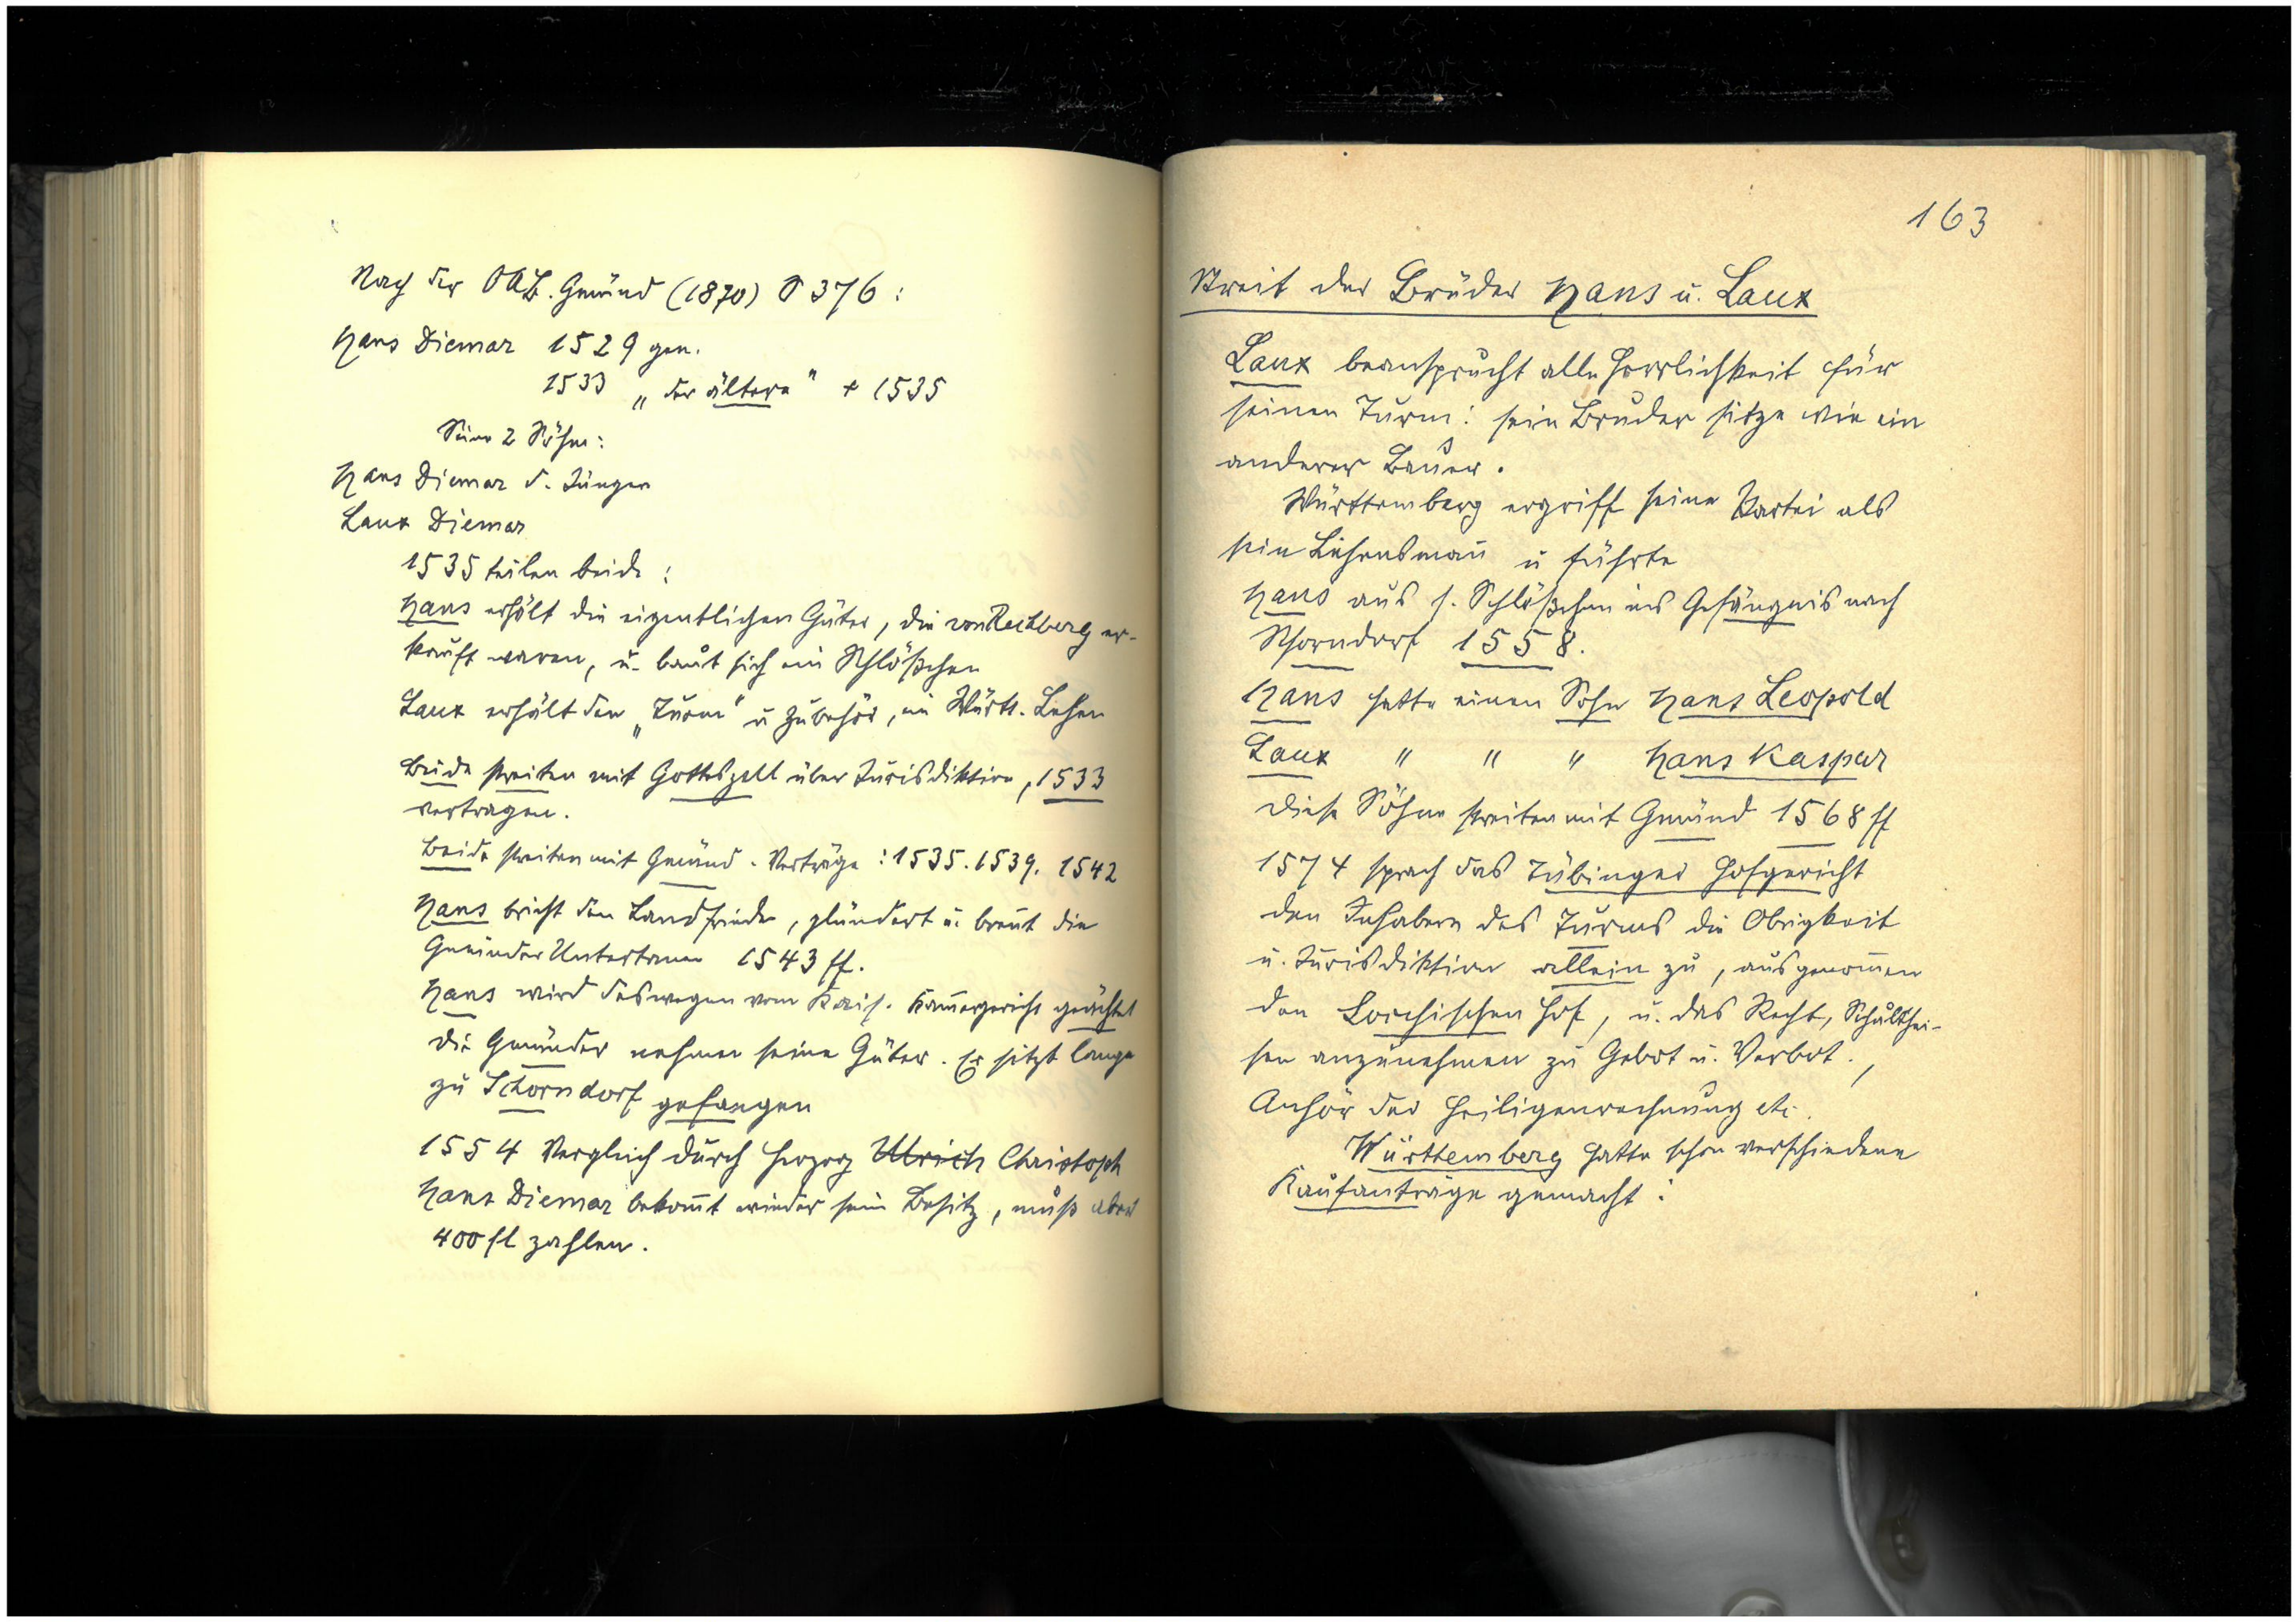 Nach der OAB. Gmünd (1870) S 376:
Hans Diemar 1529 gen.
1533 „der ältere" + 1535
Seine 2 Söhne:
Hans Diemar d. Jünger
Laux Diemar
1535 teilen beide:
Hans erhält die eigentlichen Güter, die von Rechberg er-
kauft waren, u. baut sich ein Schlößchen
Laux erhält den „Turm" u Zubehör, ein Württ. Lehen
Beide streiten mit Gotteszell über Jurisdiktion, 1533
vertragen.
Beide streiten mit Gmünd. Verträge: 1535. 1539. 1542
Hans bricht den Landfrieden, plündert u. brennt die
Gmünder Untertanen 1543 ff.
Hans wird deswegen vom Kais. Kam̄ergericht geächtet
Die Gmünder nehmen seine Güter. Er sitzt lange
zu Schorndorf gefangen
1554 Vergleich durch Herzog Ulrich Christoph
Hans Diemar bekom̄t wieder sein Besitz, muß aber
400 fl zahlen.
163
Streit der Brüder Hans u. Laux
Laux beansprucht alle Herrlichkeit für
seinen Turm: sein Bruder sitze wie ein
anderer Bauer.
Württemberg ergriff seine Partei als
sein Lehensman̄ u führte
Hans aus s. Schlößchen ins Gefängnis nach
Schorndorf 1558.
Hans hatte einen Sohn Hans Leopold
Laux " " " Hans Kaspar
Diese Söhne streiten mit Gmünd 1568 ff
1574 sprach das Tübinger Hofgericht
den Inhabern des Turms die Obrigkeit
u. Jurisdiktion allein zu, ausgenom̄en
den Lorchischen Hof, u. das Recht, Schulthei-
sen anzunehmen zu Gebot u. Verbot.,
Anhör der Heiligenrechnung etc.
Württemberg hatte schon verschiedene
Kaufanträge gemacht: